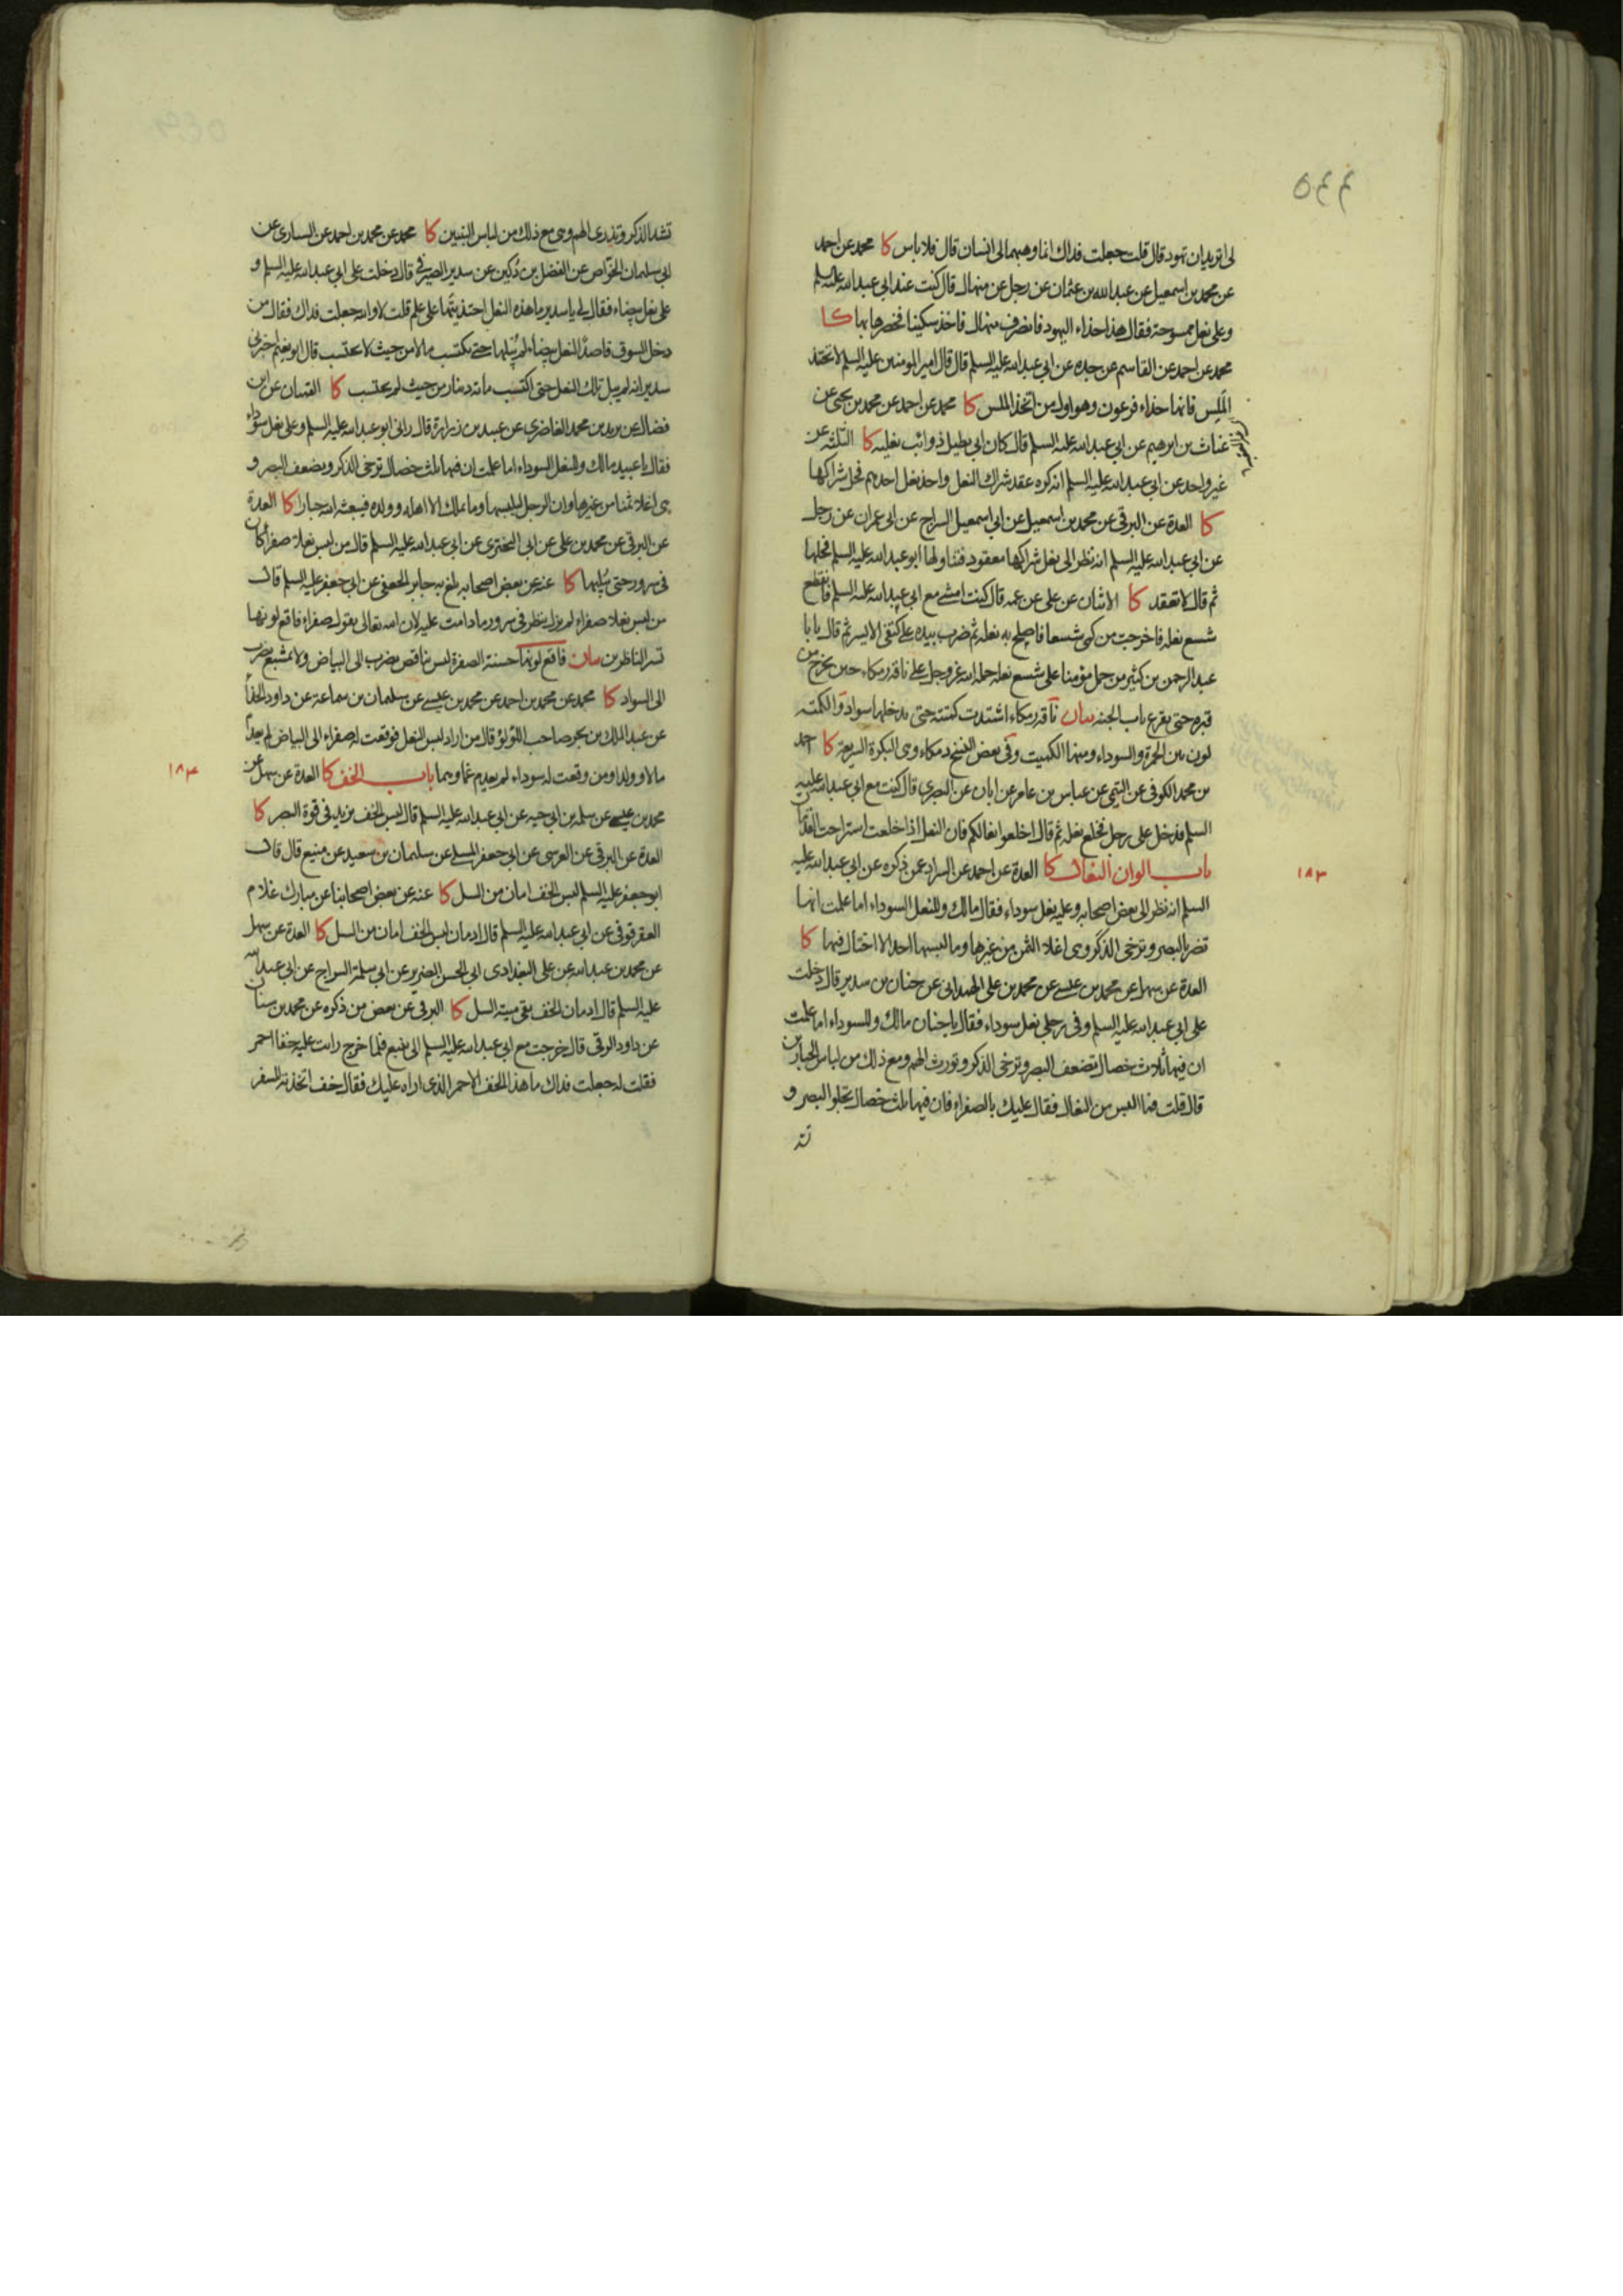 ٥٤٤
لى اتريد ان تهود قال قلت جعلت فداك انما وهبهما لى انسان قال فلا باس كا محمد عن احمد
عن محمد بن اسمعيل عن عبد الله بن عثمان عن رجل عن منهال قال كنت عند ابي عبد الله عليه السلم
وعلى نعل ممسوحة فقال هذا حذاء اليهود فانصرف منهال فاخذ سكينا فخصرها بها كا
محمد عن احمد عن القاسم عن جده عن ابي عبد الله عليه السلم قال قال امير المومنين عليه السلم لا تتخذ
الملس فانها حذاء فرعون وهو اول من اتخذ الملس كا محمد عن احمد عن محمد بن يحيى عن
غياث بن ابرهيم عن ابي عبد الله عليه السلم قال كان ابي يطيل ذوائب نعليه كا الثلثة عن
غير واحد عن ابي عبد الله عليه السلم انه كره عقد شراك النعل واخذ نعل احدهم فحل شراكها
كا العدة عن البرقي عن محمد بن اسمعيل عن ابي اسمعيل السراج عن ابي عمران عن رجل
عن ابي عبد الله عليه السلم انه نظر الى نعل شراكها معقود فتناولها ابو عبد الله عليه السلم فحلها
ثم قال لا تعقد كا الاثنان عن على عن عمه قال كنت امشي مع ابي عبد الله عليه السلم فانقطع
شسع نعله فاخرجت من كمى شسعا فاصلح به نعله ثم ضرب بيده على كتفى الايسر ثم قال يا با
عبد الرحمن بن كثير من حمل مؤمنا على شسع نعله حمله الله عز وجل على ناقة رمكاء حين يخرج من
قبره حتى يقرع باب الجنة بيان ناقة رمكاء اشتدت كمتته حتى يدخلها سواد والكمتة
لون بين الحمرة والسوداء ومنها الكميت وفي بعض النسخ دمكاء وهى البكرة السريعة كا احمد
بن محمد الكوفى عن التيمى عن عباس بن عامر عن ابان عن البصرى قال كنت مع ابي عبد الله عليه
السلم فدخل على رجل فخلع نعله ثم قال اخلعوا نعالكم فان النعل اذا خلعت استراحت القدمان
١٨٣
باب الوان النعال كا العدة عن احمد عن السراد عمن ذكره عن ابي عبد الله عليه
السلم انه نظر الى بعض اصحابه وعليه نعل سوداء فقال مالك وللنعل السوداء اما علمت انها
تضر بالبصر وترخى الذكر وهى اغلا الثمن من غيرها وما لبسها احد الا اختال فيها كا
العدة عن سهل عن محمد بن عيسى عن محمد بن على الهمدانى عن حنان بن سدير قال دخلت
على ابي عبد الله عليه السلم وفى رجلى نعل سوداء فقال يا حنان مالك وللسوداء اما علمت
ان فيها ثلاث خصال تضعف البصر وترخى الذكر وتورث الهم ومع ذلك من لباس الجبارين
قال قلت فما البس من النعال فقال عليك بالصفراء فان فيها ثلث خصال تجلو البصر و
تشد
تشد الذكر وتدرى الهم وهى مع ذلك من لباس النبيين كا محمد عن محمد بن احمد عن السيارى عن
ابي سليمان الخواص عن الفضل بن دكين عن سدير الصيرفي قال دخلت على ابي عبد الله عليه السلم و
على نعل بيضاء فقال لي يا سدير ما هذه النعل احتذيتها على علم قلت لا والله جعلت فداك فقال من
دخل السوق قاصدًا لنعل بيضاء لم يبلها حتى يكتسب مالا من حيث لا يحتسب قال ابو نعيم اخبرنى
سدير انه لم يبل تلك النعل حتى اكتسب مائة دينار من حيث لم يحتسب كا القميان عن ابن
فضال عن بريد بن محمد الغاضرى عن عبيد بن زرارة قال رانى ابو عبد الله عليه السلم وعلى نعل سوداء
فقال يا عبيد مالك وللنعل السوداء اما علمت ان فيها ثلث خصال ترخى الذكر وتضعف البصر و
هى اغلا ثمنا من غيرها وان الرجل ليلبسها وما يملك الا اهله وولده فيبعثه الله جبارا كا العدة
عن البرقى عن محمد بن على عن ابي البخترى عن ابي عبد الله عليه السلم قال من لبس نعلا صفراء كان
فى سرور حتى يبليها كا عنه عن بعض اصحابه بلغ به جابر الجعفى عن ابي جعفر عليه السلم قال
من لبس نعلا صفراء لم يزل ينظر فى سرور ما دامت عليه لان الله تعالى يقول صفراء فاقع لونها
تسر الناظرين بيان فاقع لونها حسنة الصفرة ليس بناقص يضرب الى البياض ولا بمشبع يضرب
الى السواد كا محمد عن محمد بن احمد عن محمد بن عيسى عن سليمان بن سماعة عن داود الحذاء
عن عبد الملك بن بحر صاحب اللؤلؤ قال من اراد لبس النعل فوقعت له صفراء الى البياض لم يعدم
مالا وولدا ومن وقعت له سوداء لم يعدم غما وهما باب الخف كا العدة عن سهل عن
١٨٤
محمد بن عيسى عن سلمة بن ابي حبة عن ابي عبد الله عليه السلم قال لبس الخف يزيد فى قوة البصر كا
العدة عن البرقى عن العرسى عن ابي جعفر المسلى عن سليمان بن سعيد عن منيع قال قال
ابو جعفر عليه السلم لبس الخف امان من السل كا عنه عن بعض اصحابنا عن مبارك غلام
العقرقوفى عن ابي عبد الله عليه السلم قال ادمان لبس الخف امان من السل كا العدة عن سهل
عن محمد بن عبد الله عن على البغدادى ابي الحسن الضرير عن ابي سلمة السراج عن ابي عبد الله
عليه السلم قال ادمان الخف يقى ميتة السل كا البرقى عن بعض من ذكره عن محمد بن سنان
عن داود الرقى قال خرجت مع ابي عبد الله عليه السلم الى ينبع فلما خرج رايت عليه خفا احمر
فقلت له جعلت فداك ما هذا الخف الاحمر الذى اراه عليك فقال خف اتخذته للسفر